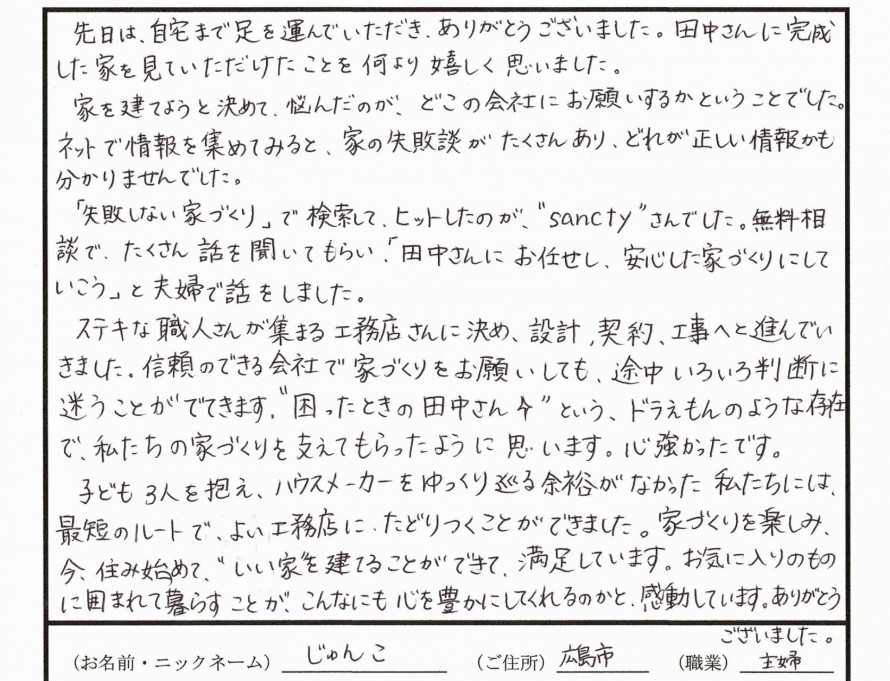 先日は、自宅まで足を運んでいただき、ありがとうございました。田中さんに完成
した家を見ていただけたことを何より嬉しく思いました。
家を建てようと決めて、悩んだのが、どこの会社にお願いするかということでした。
ネットで情報を集めてみると、家の失敗談がたくさんあり、どれが正しい情報かも
分かりませんでした。
「失敗しない家づくり」で検索して、ヒットしたのが、“sancty”さんでした。無料相
談で、たくさん話を聞いてもらい、「田中さんにお任せし、安心した家づくりにして
いこう」と夫婦で話をしました。
ステキな職人さんが集まる工務店さんに決め、設計、契約、工事へと進んでい
きました。信頼のできる会社で家づくりをお願いしても、途中いろいろ判断に
迷うことがでてきます。“困ったときの田中さん”という、ドラえもんのような存在
で、私たちの家づくりを支えてもらったように思います。心強かったです。
子ども3人を抱え、ハウスメーカーをゆっくり巡る余裕がなかった私たちには、
最短のルートで、よい工務店に、たどりつくことができました。家づくりを楽しみ、
今、住み始めて、“いい家”を建てることができて、満足しています。お気に入りのもの
に囲まれて暮らすことが、こんなにも心を豊かにしてくれるのかと、感動しています。ありがとう
ございました。
(お名前・ニックネーム) じゅんこ (ご住所) 広島市 (職業) 主婦